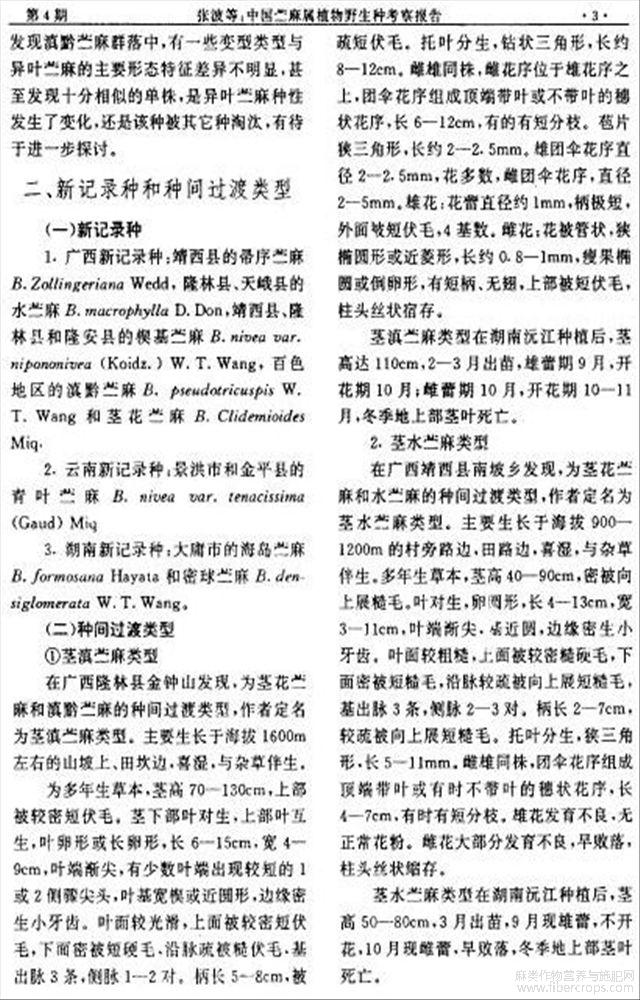 第4期
张波等:中国苎麻属植物野生种考察报告
·3·
发现滇黔苎麻群落中,有一些变型类型与
异叶苎麻的主要形态特征差异不明显,甚
至发现十分相似的单株,是异叶苎麻种性
发生了变化,还是该种被其它种淘汰,有待
于进一步探讨。
二、新记录种和种间过渡类型
(一)新记录种
1. 广西新记录种:靖西县的帚序苎麻
B. Zollingeriana Wedd,隆林县、天峨县的
水苎麻 B. macrophylla D. Don,靖西县、隆
林县和隆安县的楔基苎麻 B. nivea var.
nipononivea (Koidz.) W. T. Wang,百色
地区的滇黔苎麻 B. pseudotricuspis W.
T. Wang 和茎花苎麻 B. Clidemioides
Miq.
2. 云南新记录种:景洪市和金平县的
青叶苎麻 B. nivea var. tenacissima
(Gaud) Miq
3. 湖南新记录种:大庸市的海岛苎麻
B. formosana Hayata 和密球苎麻 B. den-
siglomerata W. T. Wang。
(二)种间过渡类型
①茎滇苎麻类型
在广西隆林县金钟山发现,为茎花苎
麻和滇黔苎麻的种间过渡类型,作者定名
为茎滇苎麻类型。主要生长于海拔1600m
左右的山坡上、田坎边,喜湿,与杂草伴生。
为多年生草本,茎高70—130cm,上部
被较密短伏毛。茎下部叶对生,上部叶互
生,叶卵形或长卵形,长6—15cm,宽4—
9cm,叶端渐尖,有少数叶端出现较短的1
或2侧骤尖头,叶基宽楔或近圆形,边缘密
生小牙齿。叶面较光滑,上面被较密短伏
毛,下面密被短硬毛,沿脉疏被糙伏毛,基
出脉3条,侧脉1—2对。柄长5—8cm,被
疏短伏毛。托叶分生,钻状三角形,长约
8—12cm。雌雄同株,雌花序位于雄花序之
上,团伞花序组成顶端带叶或不带叶的穗
状花序,长6—12cm,有的有短分枝。苞片
狭三角形,长约2—2.5mm。雄团伞花序直
径2—2.5mm,花多数,雌团伞花序,直径
2—5mm。雄花:花蕾直径约1mm,柄极短,
外面被短伏毛,4基数。雌花:花被管状,狭
椭圆形或近菱形,长约0.8—1mm,瘦果椭
圆或倒卵形,有短柄、无翅,上部被短伏毛,
柱头丝状宿存。
茎滇苎麻类型在湖南沅江种植后,茎
高达110cm,2—3月出苗,雄蕾期9月,开
花期10月;雌蕾期10月,开花期10—11
月,冬季地上部茎叶死亡。
2. 茎水苎麻类型
在广西靖西县南坡乡发现,为茎花苎
麻和水苎麻的种间过渡类型,作者定名为
茎水苎麻类型。主要生长于海拔900—
1200m的村旁路边、田路边,喜湿,与杂草
伴生。多年生草本,茎高40—90cm,密被向
上展糙毛。叶对生,卵圆形,长4—13cm,宽
3—11cm,叶端渐尖,基近圆,边缘密生小
牙齿。叶面较粗糙,上面被较密糙硬毛,下
面密被短糙毛,沿脉较疏被向上展短糙毛,
基出脉3条,侧脉2—3对。柄长2—7cm,
较疏被向上展短糙毛。托叶分生,狭三角
形,长5—11mm。雌雄同株,团伞花序组成
顶端带叶或有时不带叶的穗状花序,长
4—7cm,有时有短分枝。雄花发育不良,无
正常花粉。雌花大部分发育不良,早败落,
柱头丝状缩存。
茎水苎麻类型在湖南沅江种植后,茎
高50—80cm,3月出苗,9月现雄蕾,不开
花,10月现雌蕾,早败落,冬季地上部茎叶
死亡。
麻类作物营养与施肥网
www.fibercrops.com